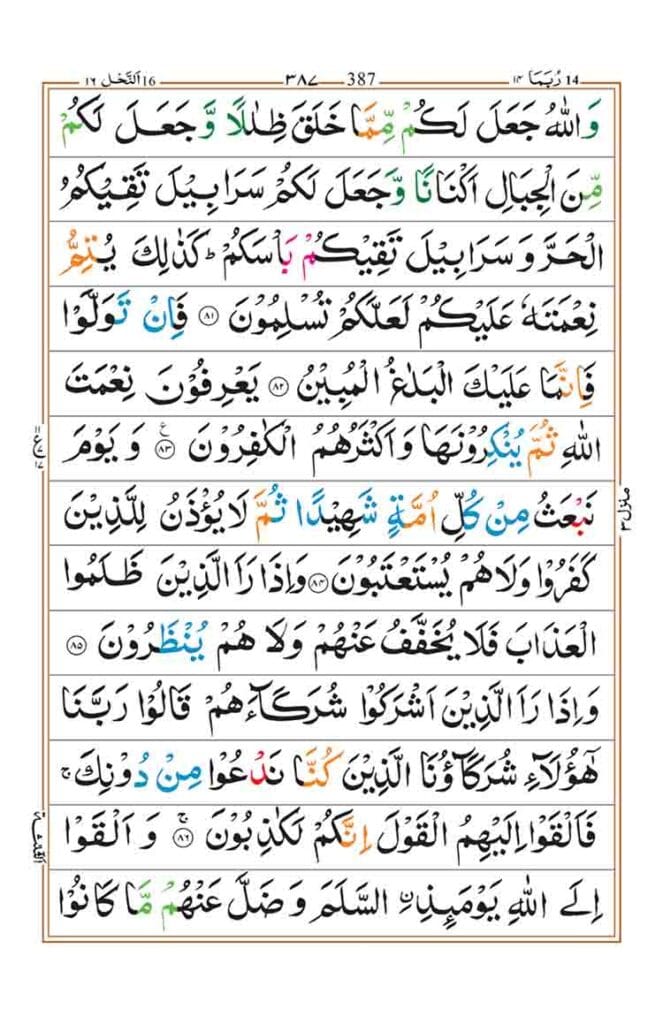 14 رُبَمَا ١٤ 387 ٣٨٧ 16 اَلنَّحْل ١٦
وَاللّٰهُ جَعَلَ لَكُمْ مِّمَّا خَلَقَ ظِلٰلًا وَّ جَعَلَ لَكُمْ
مِّنَ الْجِبَالِ اَكْنَانًا وَّجَعَلَ لَكُمْ سَرَابِيْلَ تَقِيْكُمُ
الْحَرَّ وَ سَرَابِيْلَ تَقِيْكُمْ بَاْسَكُمْ ؕ كَذٰلِكَ يُتِمُّ
نِعْمَتَهٗ عَلَيْكُمْ لَعَلَّكُمْ تُسْلِمُوْنَ ﴿۸۱﴾ فَاِنْ تَوَلَّوْا
فَاِنَّمَا عَلَيْكَ الْبَلٰغُ الْمُبِيْنُ ﴿۸۲﴾ يَعْرِفُوْنَ نِعْمَتَ
اللّٰهِ ثُمَّ يُنْكِرُوْنَهَا وَاَكْثَرُهُمُ الْكٰفِرُوْنَ ﴿۸۳﴾ ع وَ يَوْمَ
نَبْعَثُ مِنْ كُلِّ اُمَّةٍ شَهِيْدًا ثُمَّ لَا يُؤْذَنُ لِلَّذِيْنَ
منزل ٣
كَفَرُوْا وَلَا هُمْ يُسْتَعْتَبُوْنَ ﴿۸۴﴾ وَاِذَا رَاَ الَّذِيْنَ ظَلَمُوا
الْعَذَابَ فَلَا يُخَفَّفُ عَنْهُمْ وَلَا هُمْ يُنْظَرُوْنَ ﴿۸۵﴾
وَاِذَا رَاَ الَّذِيْنَ اَشْرَكُوْا شُرَكَآءَهُمْ قَالُوْا رَبَّنَا
هٰٓؤُلَآءِ شُرَكَآؤُنَا الَّذِيْنَ كُنَّا نَدْعُوْا مِنْ دُوْنِكَ ۚ
فَاَلْقَوْا اِلَيْهِمُ الْقَوْلَ اِنَّكُمْ لَكٰذِبُوْنَ ﴿۸۶﴾ ۚ وَ اَلْقَوْا
الثلثة
اِلَى اللّٰهِ يَوْمَئِذِ ِۨ السَّلَمَ وَ ضَلَّ عَنْهُمْ مَّا كَانُوْا